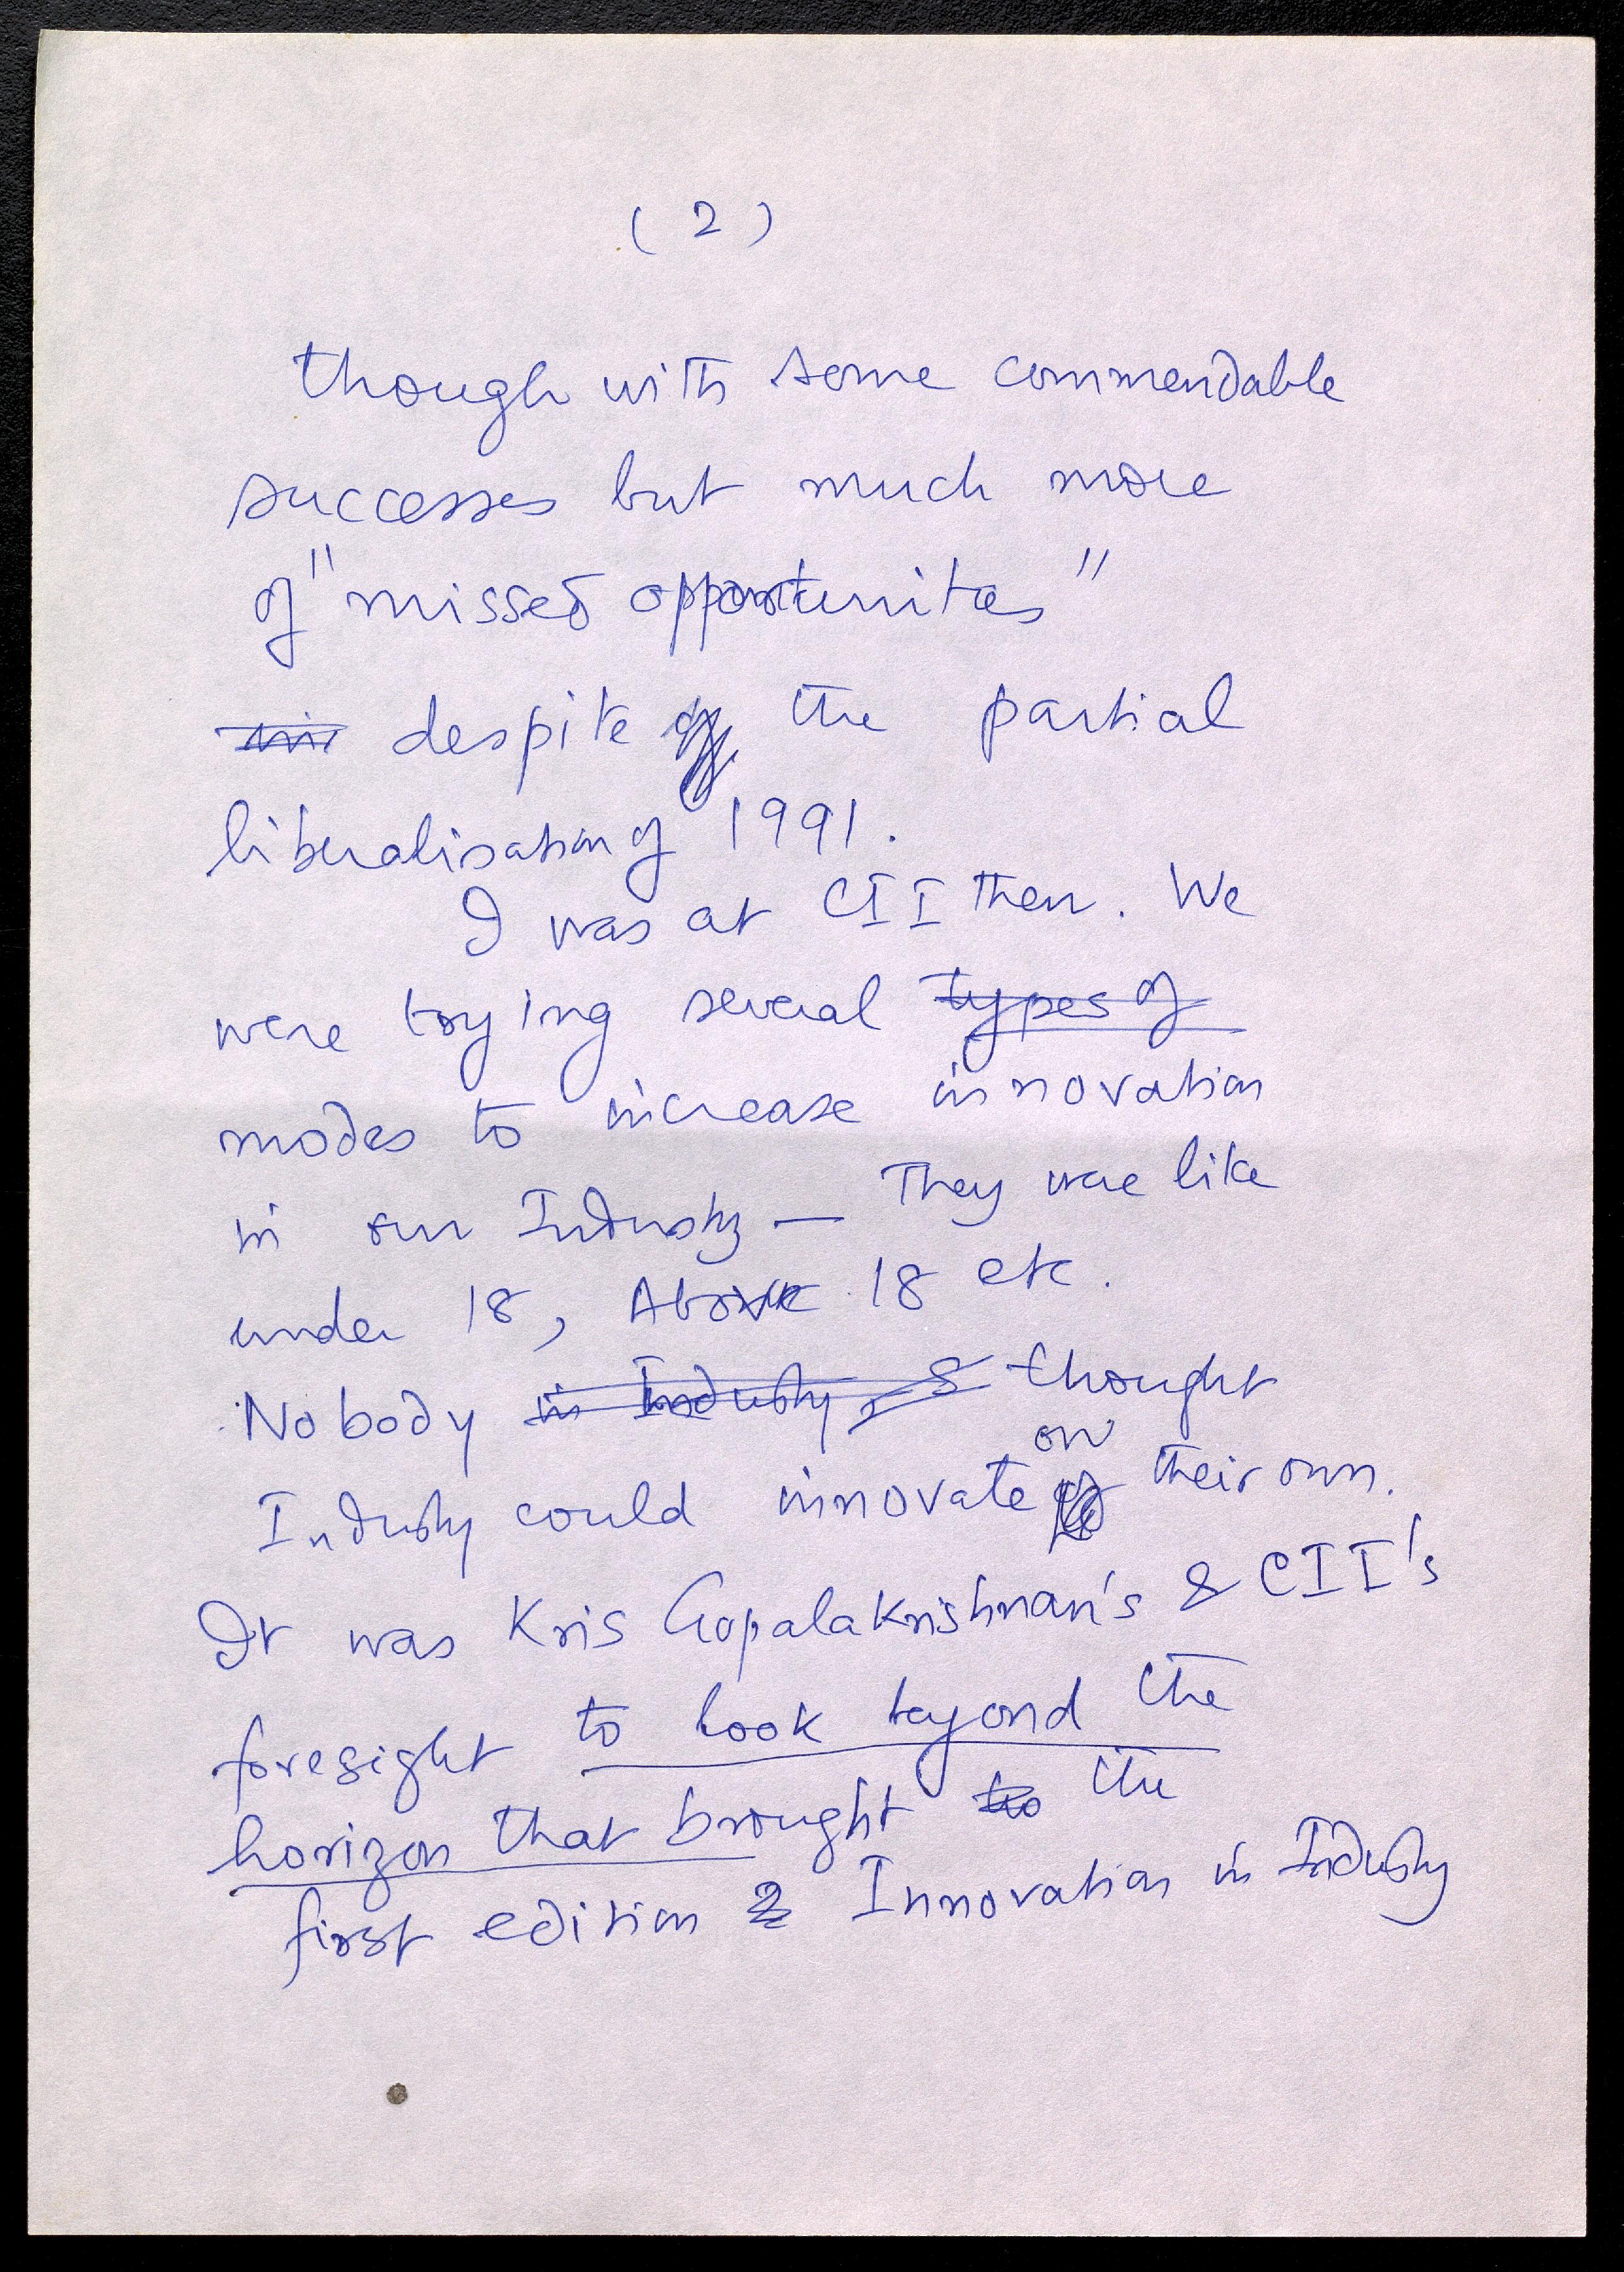 ( 2 )
though with some commendable
successes but much more
of "missed opportunities"
despite the partial
liberalisation of 1991.
I was at CII then. We
were trying several types of
modes to increase innovation
in our Industry — They were like
under 18, Above 18 etc.
Nobody in Industry & thought
on
Industry could innovate their own.
It was Kris Gopalakrishnan's & CII's
foresight to look beyond the
horizon that brought to the
first edition Innovation in Industry